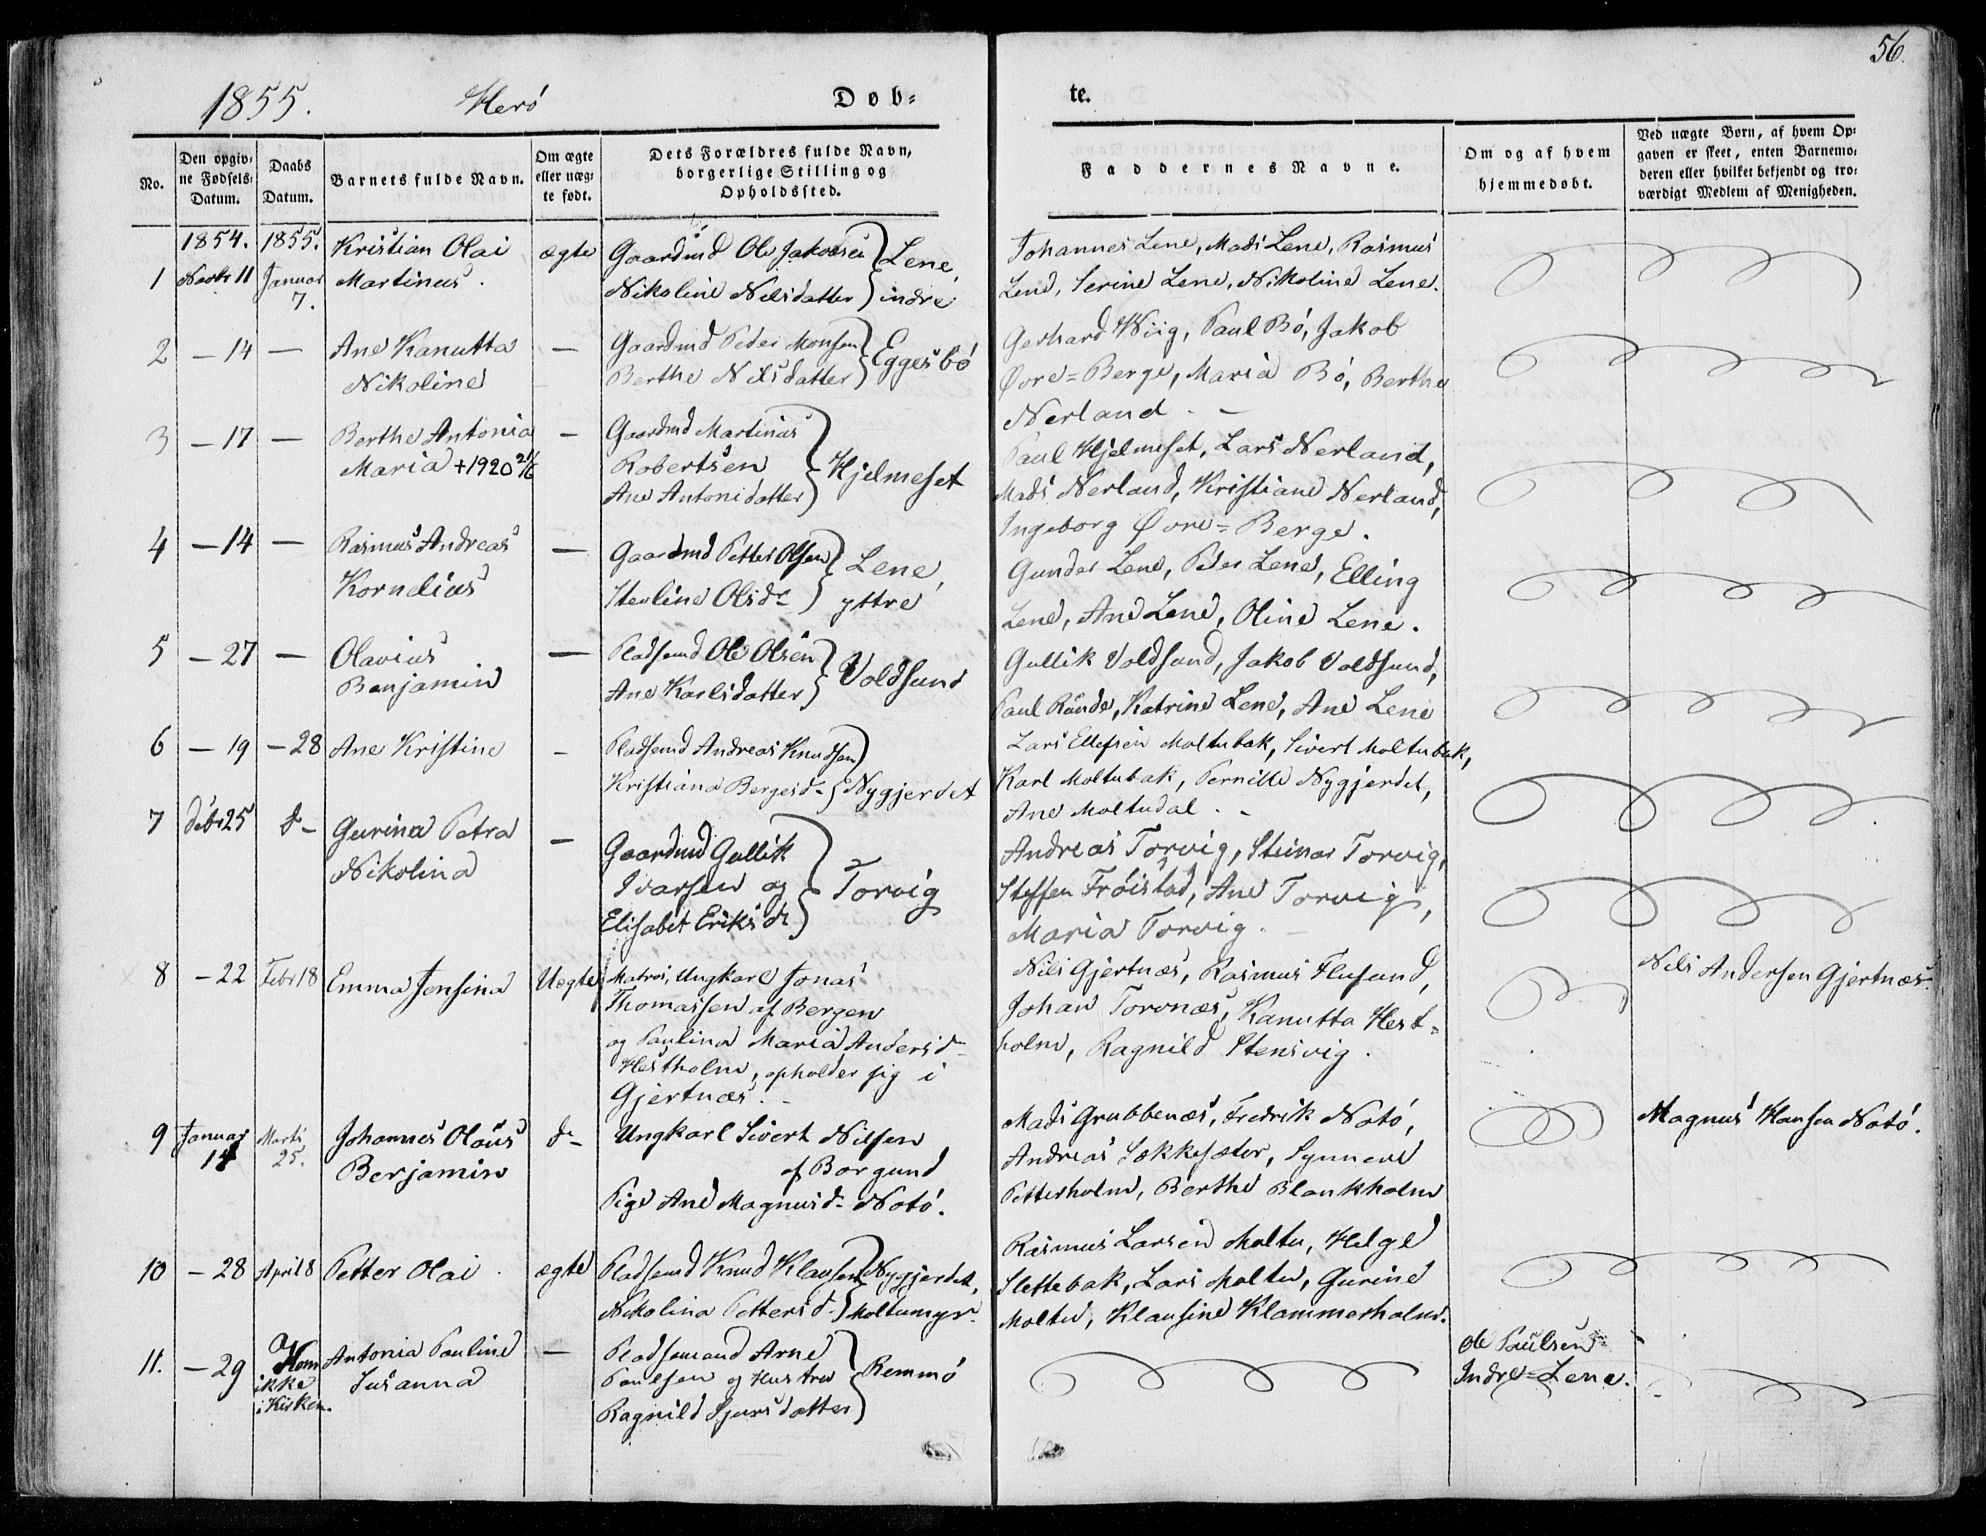 56.
1855. Herö Døb- te.
No.
Den opgiv-
ne Fødsels-
Datum.
Daabs
Datum.
Barnets fulde Navn.
Om ægte
eller uæg-
te født.
Dets Forældres fulde Navn,
borgerlige Stilling og
Opholdssted.
Faddernes Navne.
Om og af hvem
hjemmedøbt.
Ved uægte Børn, af hvem Op-
gaven er skeet, enten Barnemo-
deren eller hvilket bekjendt og tro-
værdigt Medlem af Menigheden.
1854. 1855.
1 Novbr 11 Januar 7. Kristian Olai
Martinus.
ægte
Gaardmd Ole Jakobsen
Nikoline Nilsdatter
Lene,
indre
Johannes Lene, Mads Lene, Rasmus
Lene, Serine Lene, Nikoline Lene.
2 – 14 — Ane Kanutta
Nikoline
—
Gaardmd Peder Monsen
Berthe Nilsdatter
Eggesbö
Gerhard Wiig, Paul Bö, Jakob
Øvre=Berge, Maria Bö, Berthe
Nerland. –
3 – 17 — Berthe Antonia
Maria +1920 21/6
–
Gaardmd Martinus
Robertsen
Ane Antonidatter
Hjelmeset
Paul Hjelmeset, Lars Nerland,
Mads Nerland, Kristiane Nerland,
Ingeborg Øvre=Berge.
4 – 14 — Rasmus Andreas
Kornelius
—
Gaardmd Petter Olsen
Olsdr
Lene,
yttre
Gunder Lene, Peder Lene, Elling
Lene, Ane Lene, Oline Lene.
5 – 27 — Olavius
Benjamin
—
Pladsemd Ole Olsen
Ane Karlsdatter
Voldsund
Gullik Voldsund, Jakob Voldsund,
Paul Runde, Katrine Lene, Ane Lene
6 – 19 – 28 Ane Kristine
–
Pladsemd Andreas Knudsen
Kristiana Bergesd-
Nygjerdet
Lars Ellefsen Moltubak, Sivert Moltubak,
Karl Moltubak, Pernille Nygjerdet,
Ane Moltudal. –
7 Debr 25 d– Gurina Petra
Nikolina
–
Gaardmd Gullik
Ivarsen og
Elisabet Eriksdr
Torvig
Andreas Torvig, Steinar Torvig,
Steffen Fröistad, Ane Torvig,
Maria Torvig. –
8 – 22 Febr 18 Emma Jensina
Uægte
Matros, Ungkarl Jonas
Thomassen af Bergen
og Paulina Maria Andersd–
Hestholm, opholder sig i
Gjertnæs. –
Nils Gjertnæs, Rasmus Flusund,
Johan Torvnæs, Kanutta Hest=
holm, Ragnild Stensvig.
Nils Andersen Gjertnæs.
9 Januar 14 Marts 25. Johannes Olaus
Berjamin
d–
Ungkarl Sivert Nilsen
af Borgund
Pige Ane Magnusd– Notö.
Mads Grubbenæs, Fredrik Notö,
Andreas Sækkesæter, Synneve
Petterholm, Berthe Blankholm
Magnus Hansen Notö.
10 – 28 April 8 Petter Olai.
ægte
Pladsemd Knud Klausen
Nikolina Pettersd–
Nygjerdet,
Moltumyr.
Rasmus Larsen Moltu, Helge
Slettebak, Lars Moltu, Gurine
Moltu, Klausine Klammerholm.
11. – 29 Kom
ikke
i Kirken.
Antonia Pauline
Susanna
—
Pladsemand Arne
Paulsen og Hustru
Ragnild Sjursdatter
Remmö
Ole Paulsen
Indre=Lene.